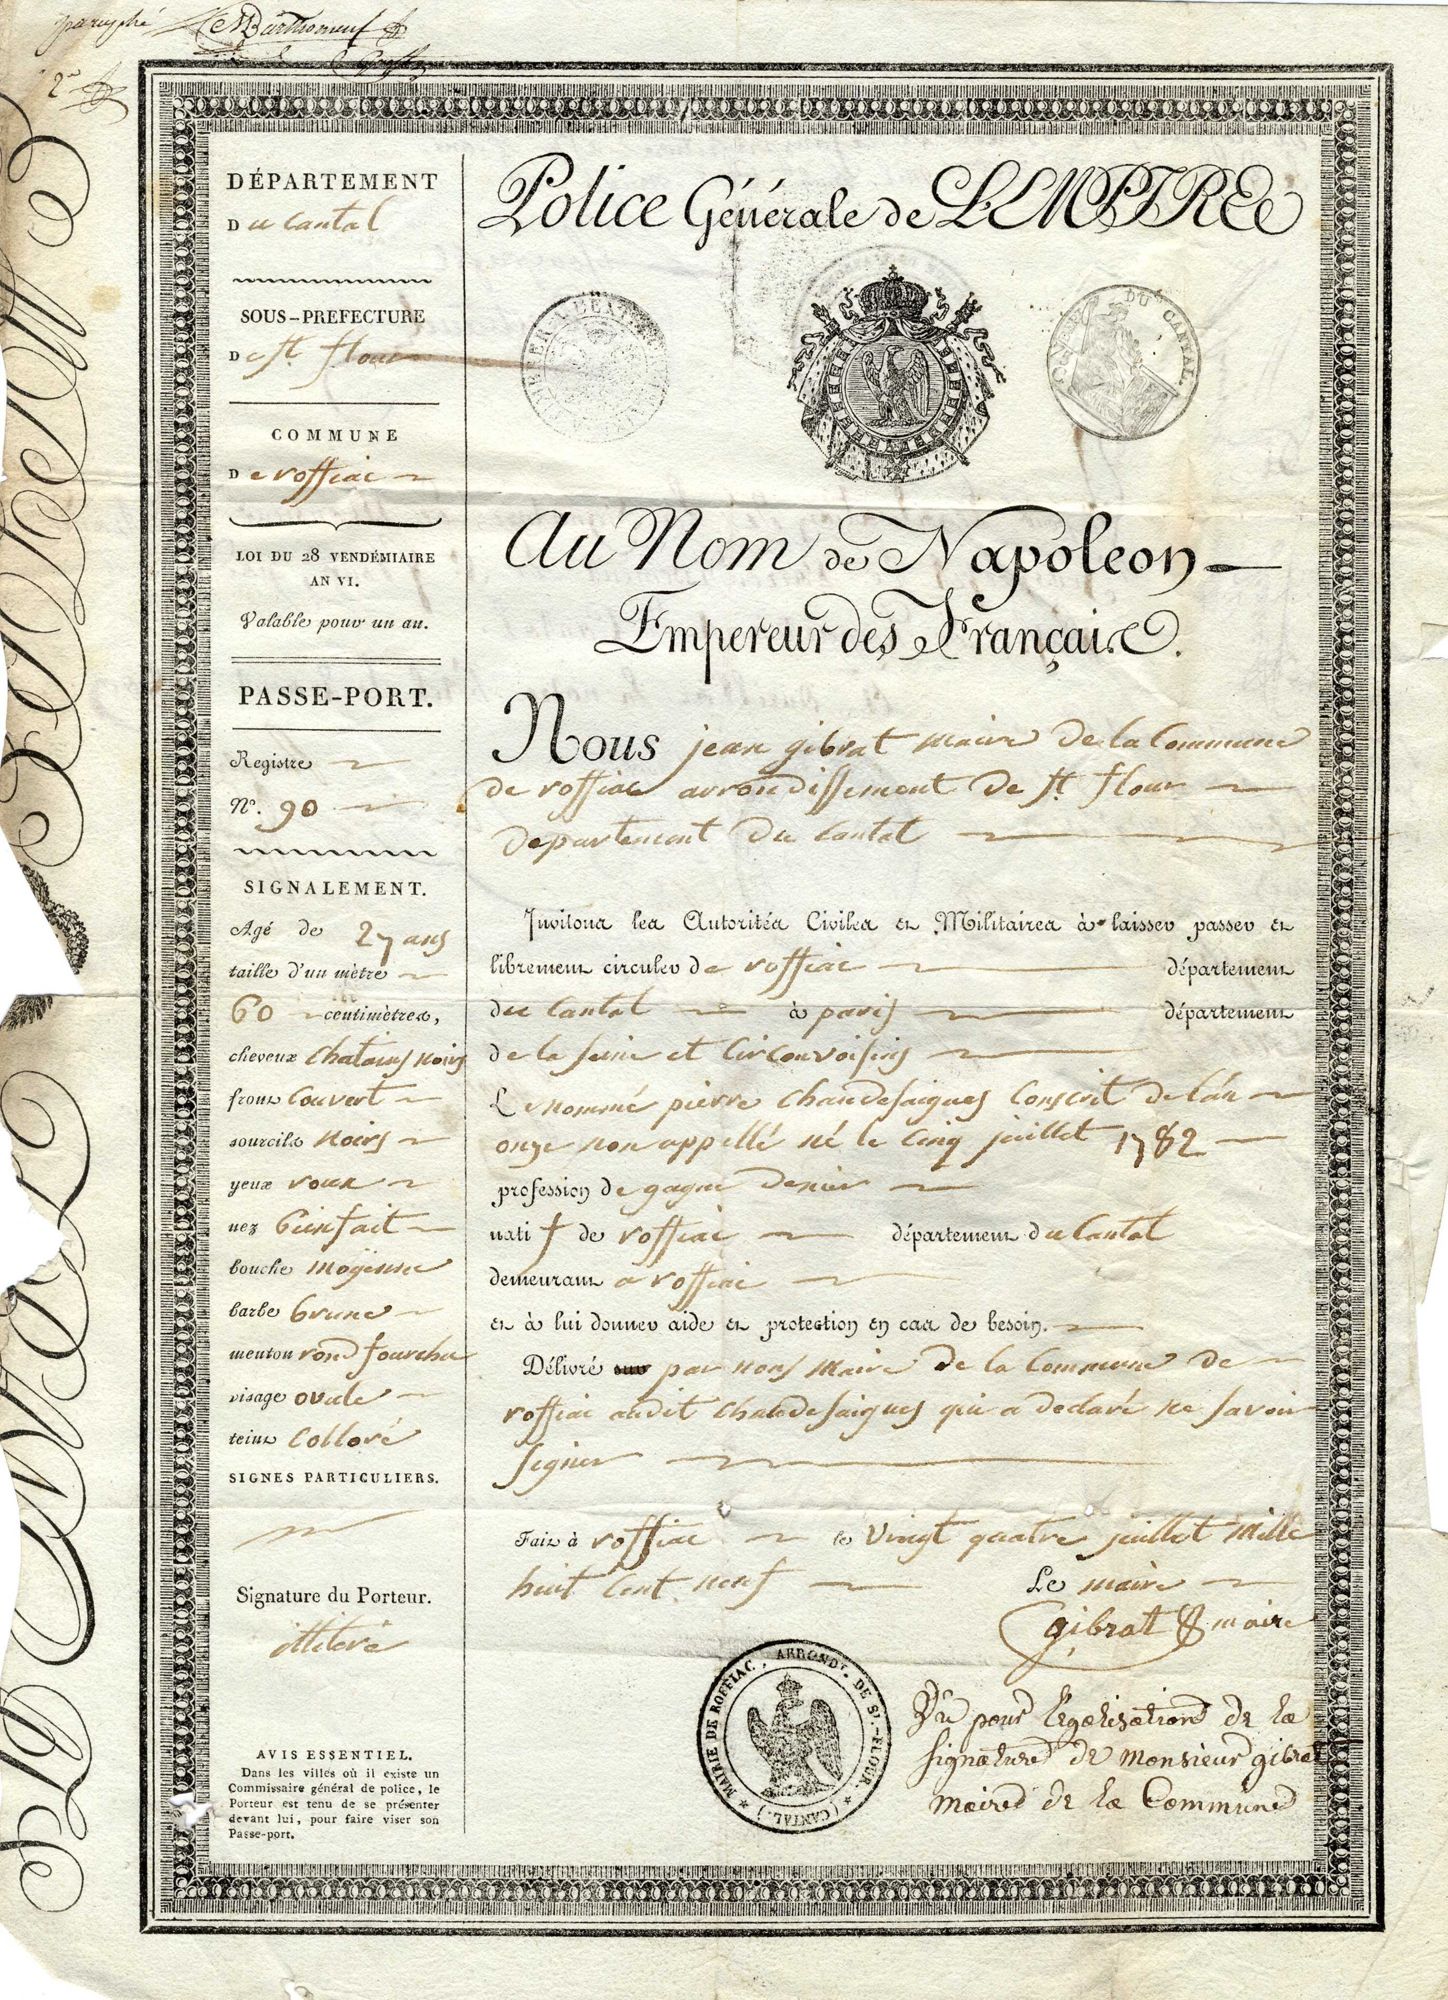 paraphé
2
DÉPARTEMENT
Du cantal
SOUS-PREFECTURE
De St. flour
COMMUNE
De roffiac
LOI DU 28 VENDÉMIAIRE
AN VI.
Valable pour un an.
PASSE-PORT.
Registre
N°. 90
SIGNALEMENT.
Agé de 27 ans
taille d'un mètre
60 centimètres,
cheveux chatains noirs
front Couvert
sourcils noirs
yeux roux
nez bienfait
bouche moÿenne
barbe brune
menton rond fourchu
visage ovale
teint Colloré
SIGNES PARTICULIERS.
Signature du Porteur.
illiteré
AVIS ESSENTIEL.
Dans les villes où il existe un
Commissaire général de police, le
Porteur est tenu de se présenter
devant lui, pour faire viser son
Passe-port.
Police Générale de L'EMPIRE
TIMBRE A L'EXTRA
DU CANTAL.
Au Nom de Napoleon
Empereur des Français.
Nous jean gibrat maire de la Commune
de roffiac arrondissement de St. flour
departement du Cantal
Invitons les Autorités Civiles et Militaires à laisser passer et
librement circuler de roffiac département
du Cantal à paris département
de la seine et Circonvoisins
Le nommé pierre chaudesaigues Conscrit de l'an
onze non appellé né le Cinq juillet 1782
profession de gagne denier
natif de roffiac département du Cantal
demeurant a roffiac
et à lui donner aide et protection en cas de besoin.
Délivré sur par nous maire de la Commune de
roffiac audit chaudesaigues qui a declaré ne savoir
signer
Fait à roffiac le vingt quatre juillet mille
huit Cent neuf Le maire
gibrat maire
MAIRIE DE ROFFIAC, ARROND.T DE S.T-FLOUR, (CANTAL)
Vu pour légalisation de la
signature de monsieur gibrat
maire de la Commune